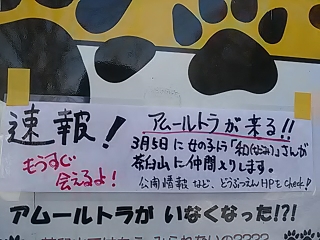 速報!
アムールトラが来る!!
3月5日に女の子トラ「和(なごみ)」さんが
茶臼山に仲間入りします。
もうすぐ
会えるよ!
公開情報など、どうぶつえんHPをCheck!
アムールトラが いなくなった!?!